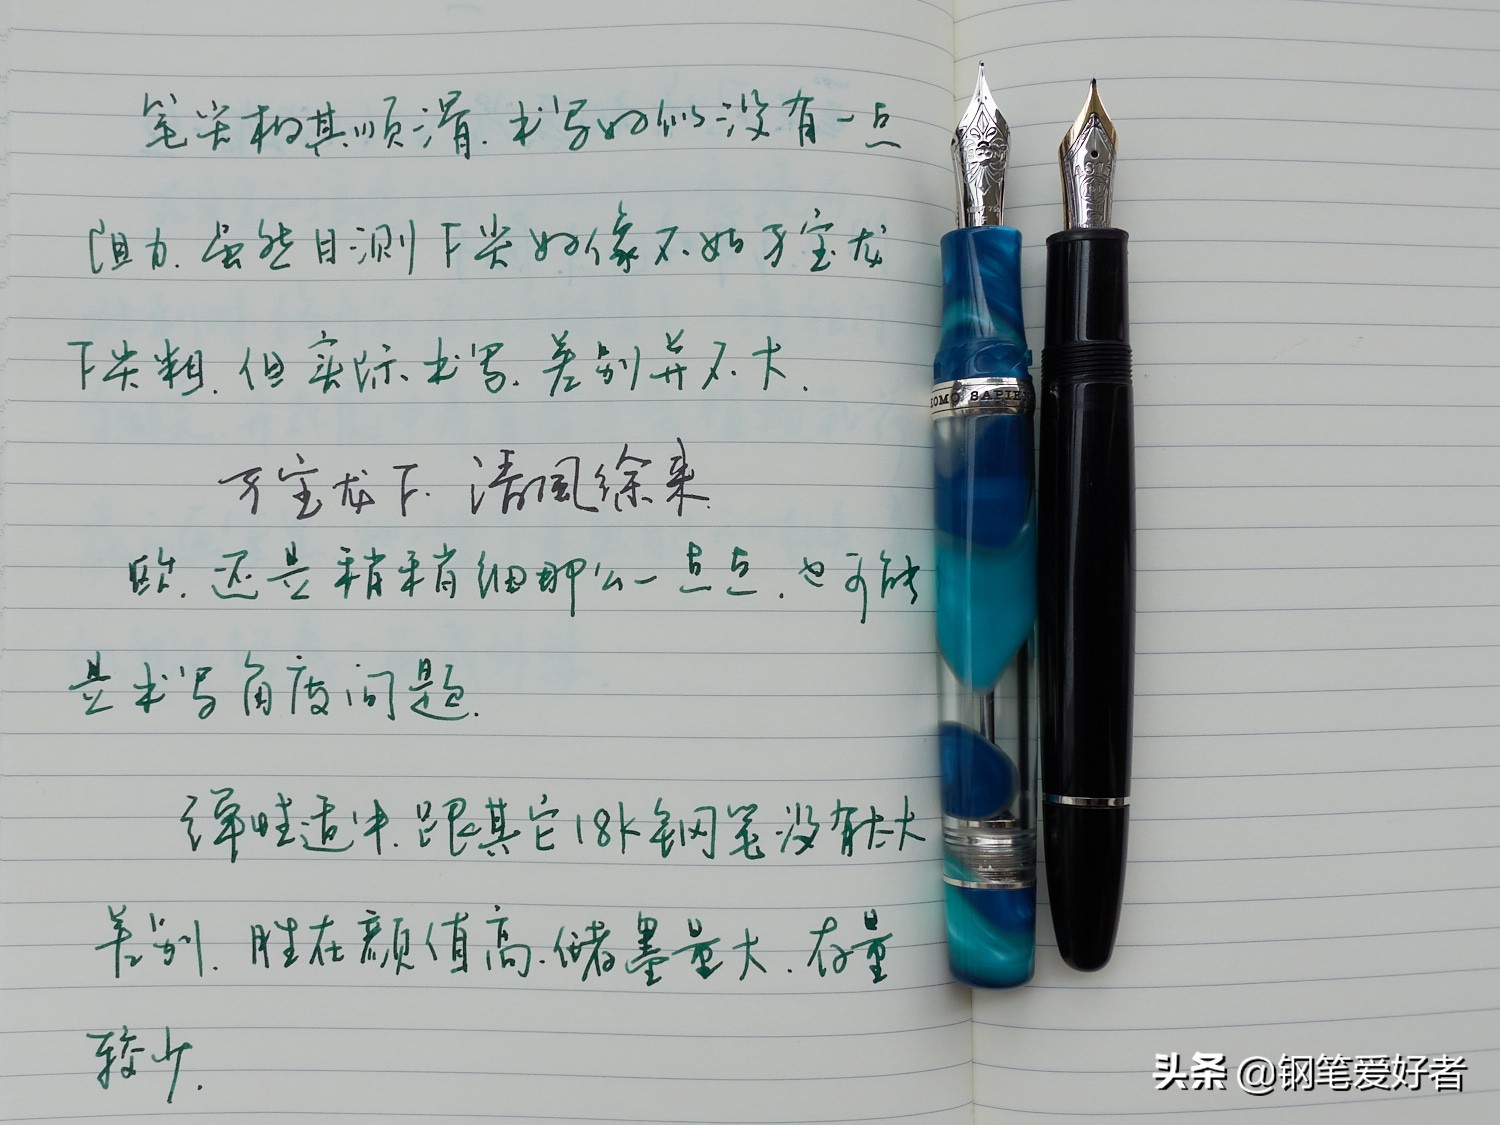 笔尖相其顺滑.书写好似没有一点
阻力.虽然目测F尖好像不如万宝龙
F尖粗.但实际书写.差别并不大.
万宝龙F.清风徐来
欧.还是稍稍细那么一点点.也可能
是书写角度问题.
弹性适中.跟其它18K钢笔没有太大
差别.胜在颜值高.储墨量大.存量
较少.
HOMO SAPIEN
头条 @钢笔爱好者